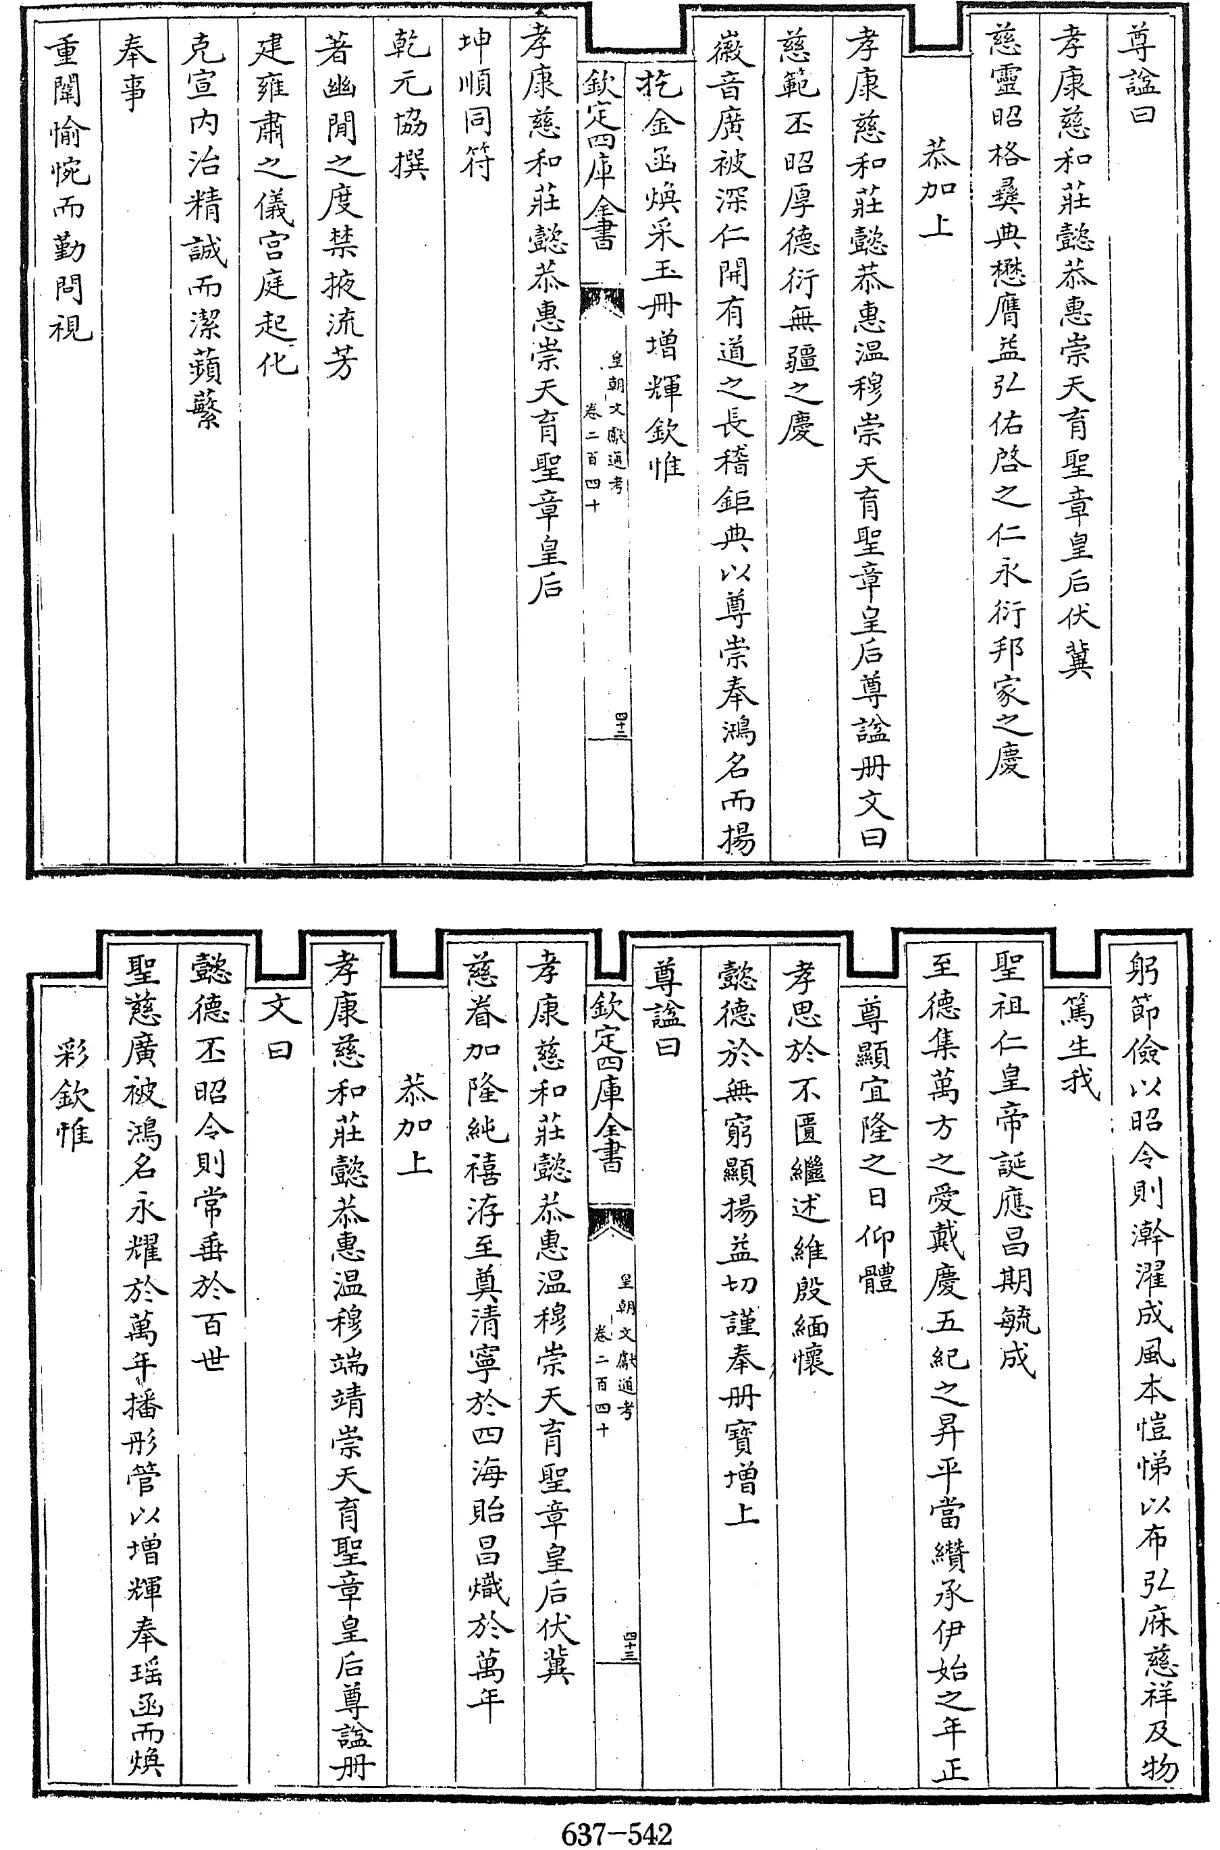 尊諡曰
孝康慈和莊懿恭惠崇天育聖章皇后伏冀
慈靈昭格彝典懋膺益弘佑啓之仁永衍邦家之慶
恭加上
孝康慈和莊懿恭惠温穆崇天育聖章皇后尊諡册文曰
慈範丕昭厚德衍無疆之慶
徽音廣被深仁開有道之長稽鉅典以尊崇奉鴻名而揚
扢金函煥采玉冊增輝欽惟
欽定四庫全書
皇朝文獻通考
卷二百四十
四十三
孝康慈和莊懿恭惠崇天育聖章皇后
坤順同符
乾元協撰
著幽閒之度禁掖流芳
建雍肅之儀宫庭起化
克宣内治精誠而潔蘋蘩
奉事
重闈愉惋而勤問視
躬節儉以昭令則澣濯成風本愷悌以布弘庥慈祥及物
篤生我
聖祖仁皇帝誕應昌期毓成
至德集萬方之愛戴慶五紀之昇平當纘承伊始之年正
尊顯宜隆之日仰體
孝思於不匱繼述維殷緬懷
懿德於無窮顯揚益切謹奉册寶增上
尊諡曰
欽定四庫全書
皇朝文獻通考
卷二百四十
四十三
孝康慈和莊懿恭惠温穆崇天育聖章皇后伏冀
慈眷加隆純禧洊至奠清寧於四海貽昌熾於萬年
恭加上
孝康慈和莊懿恭惠温穆端靖崇天育聖章皇后尊諡册
文曰
懿德丕昭令則常垂於百世
聖慈廣被鴻名永耀於萬年播彤管以增輝奉瑶函而煥
彩欽惟
637-542